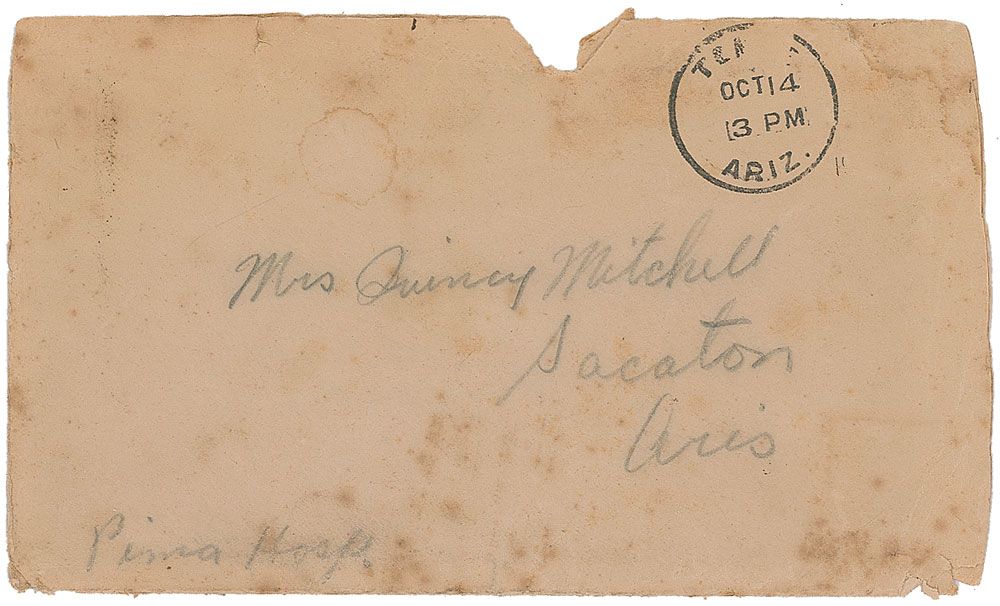 OCT 14
3 PM
ARIZ.
Mrs Quincy Mitchell
Sacaton
Aris
Pima Hosp.